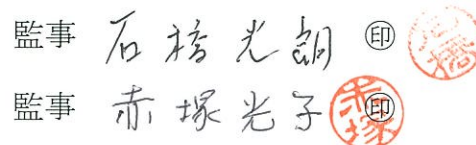 監事 石橋光朗 ㊞ 石橋
監事 赤塚光子 ㊞ 赤塚